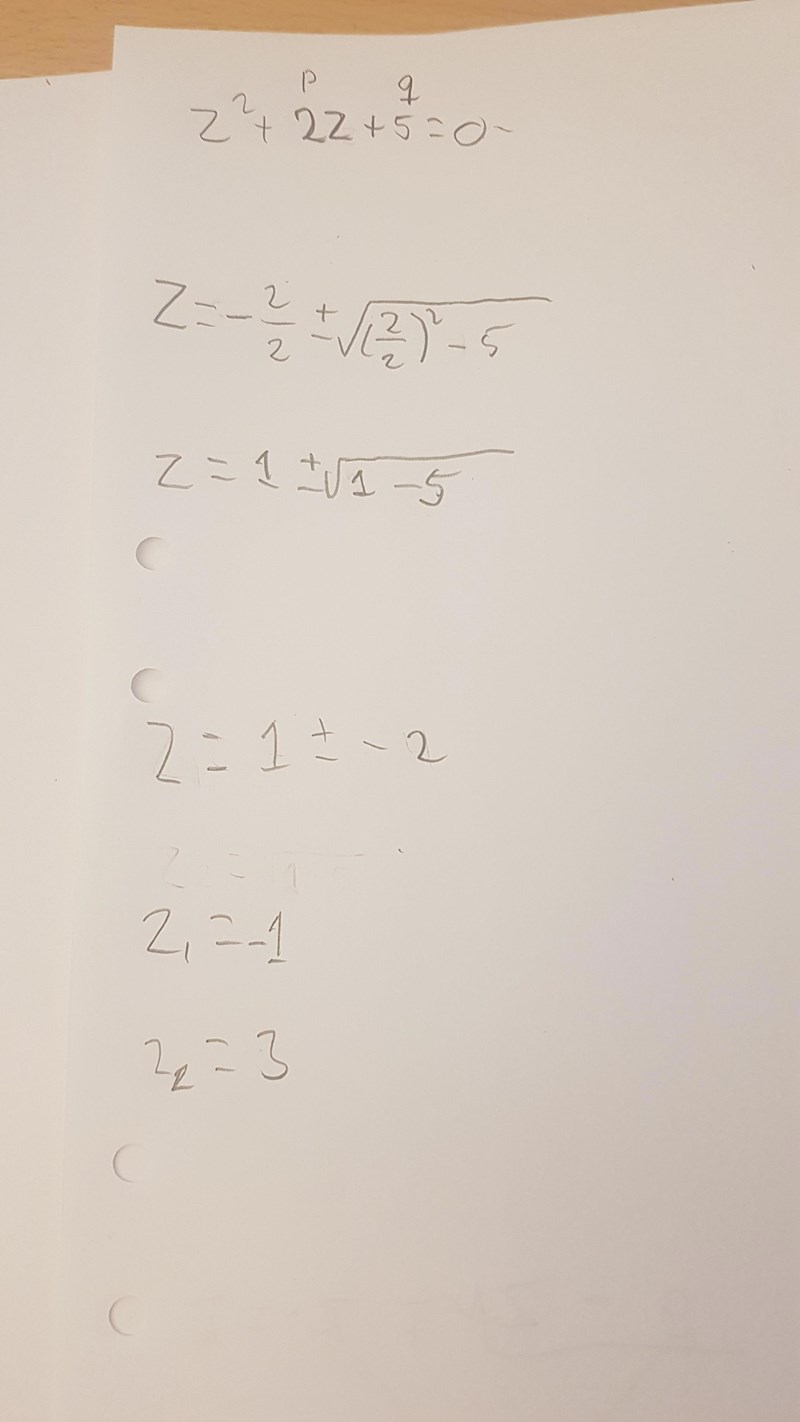 p q
z² + 2z + 5 = 0
z = - 2/2 ± √((2/2)² - 5
z = 1 ± √1 - 5
z = 1 ± - 2
z₁ = -1
z₂ = 3